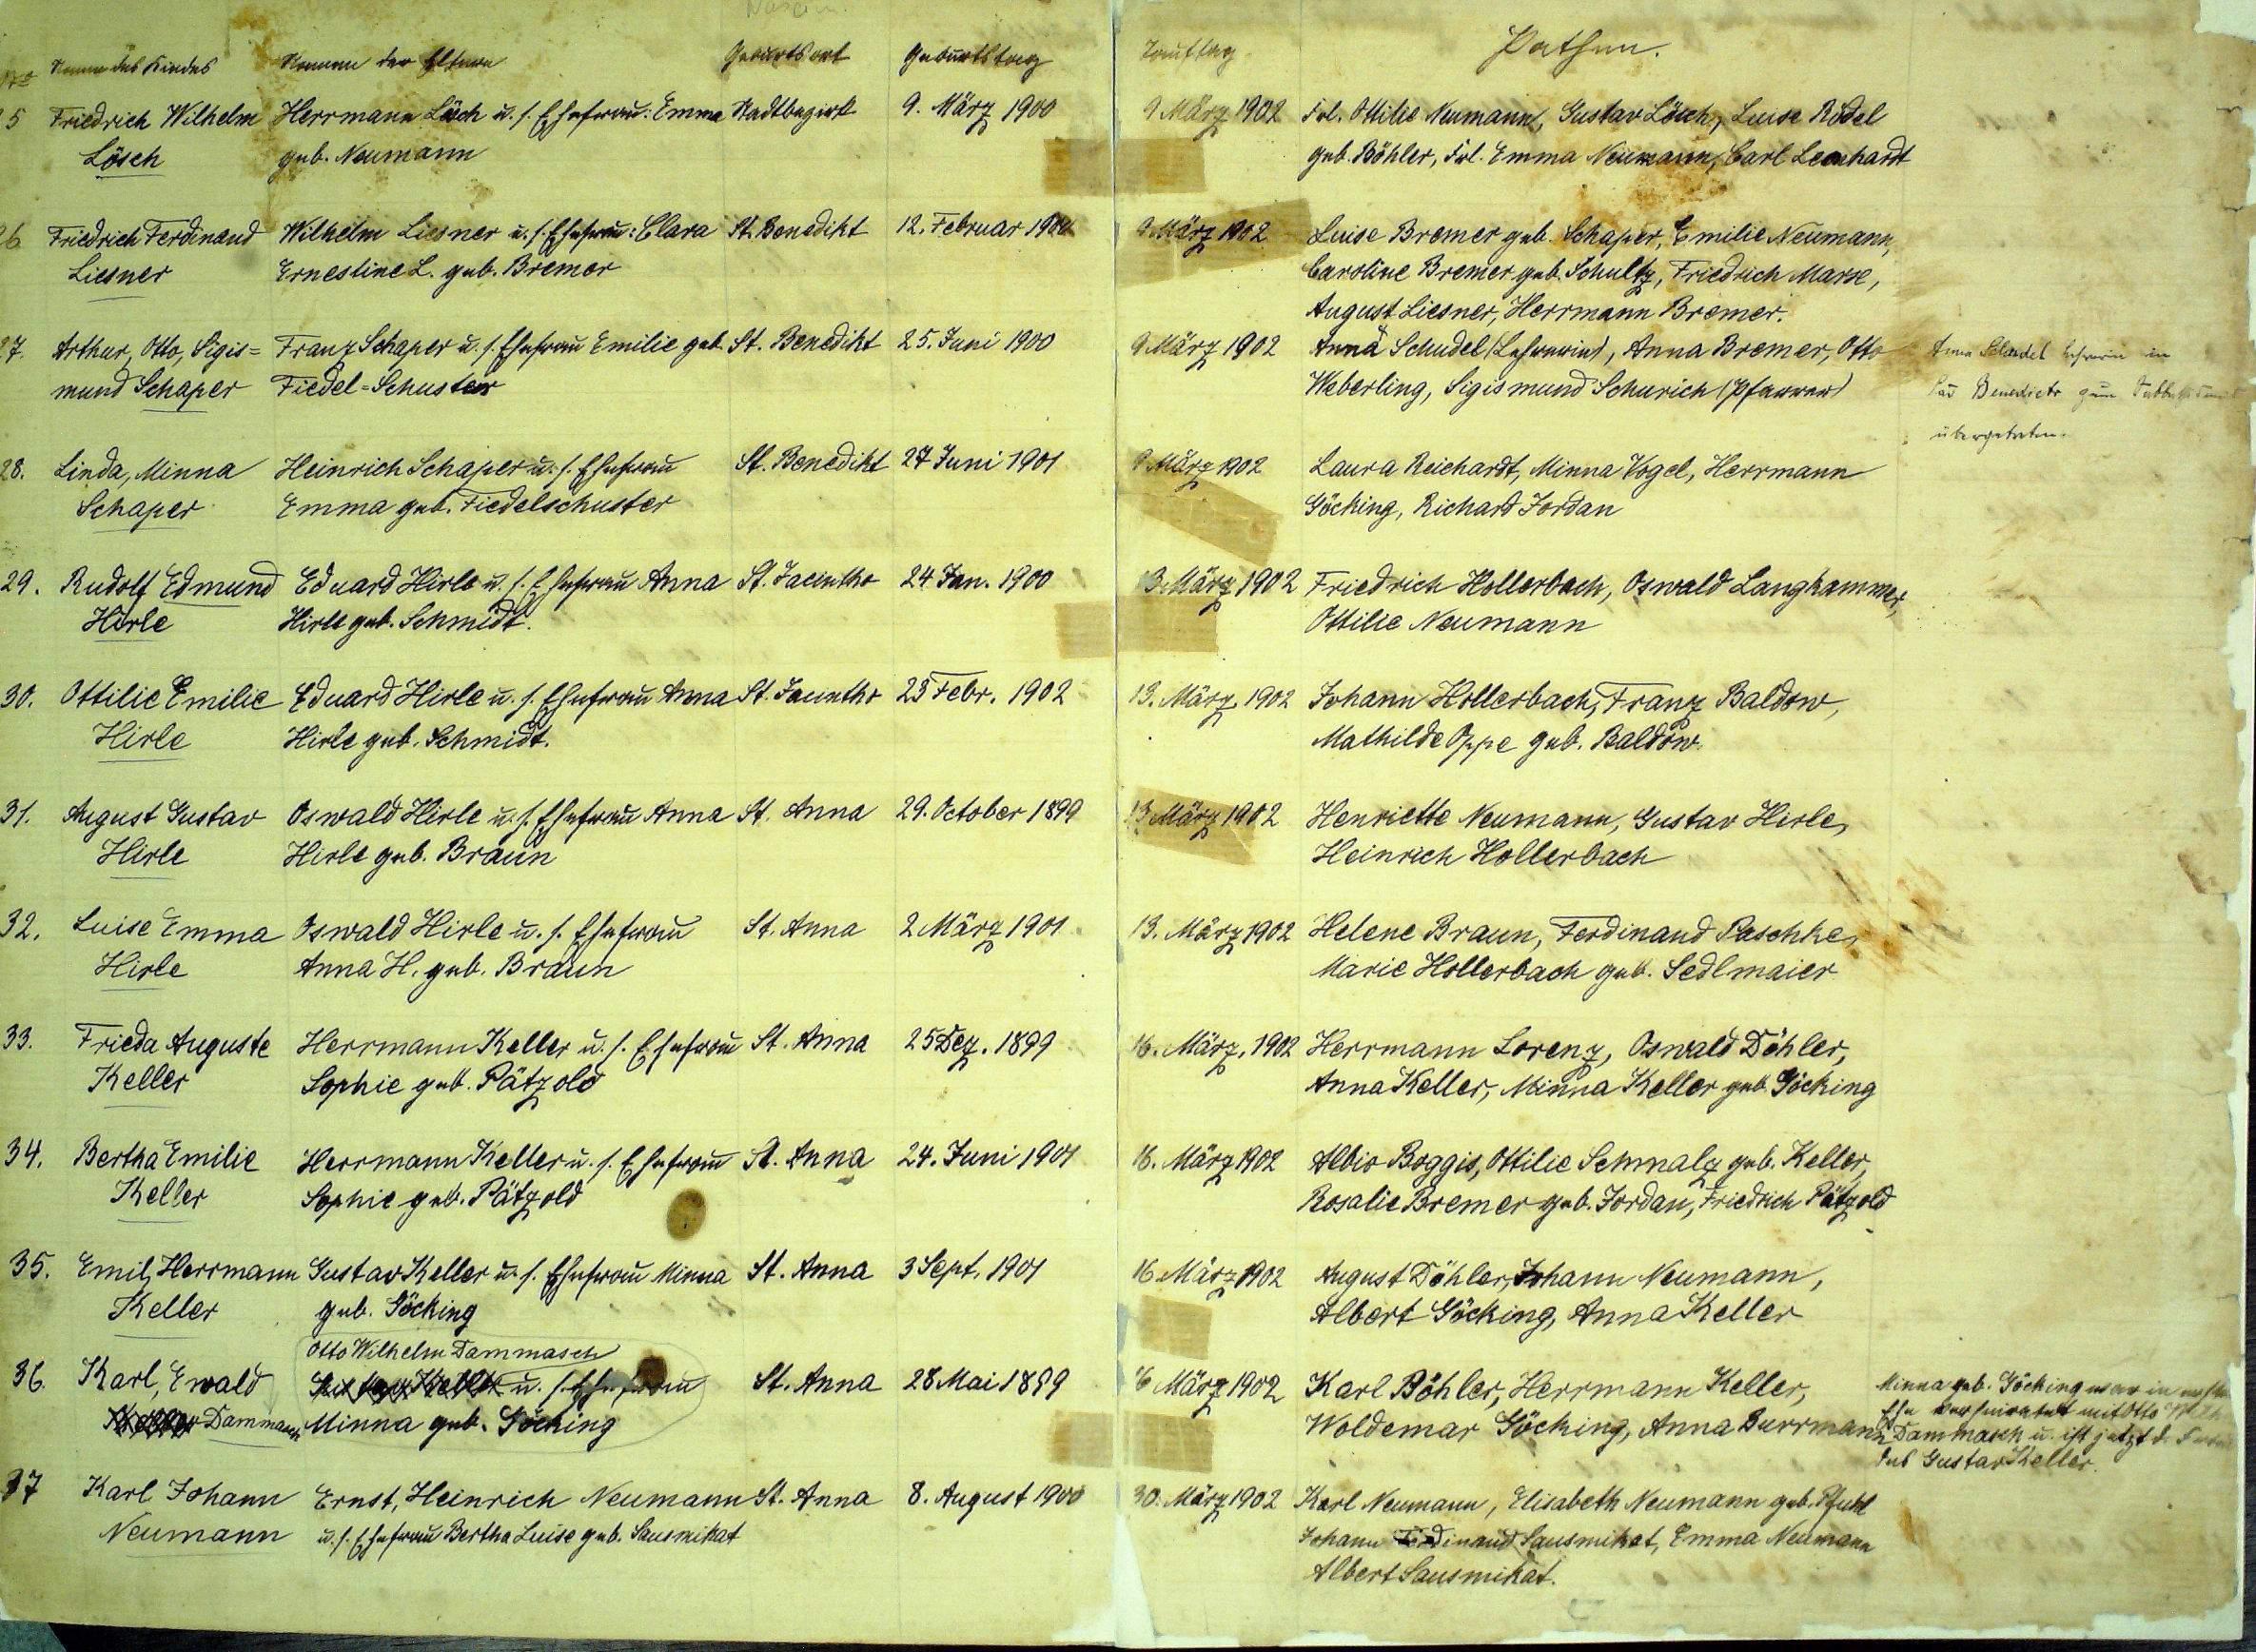 Nascim.
No Name des Kindes Namen der Eltern Geburtsort Geburtstag Tauftag Pathen.
25 Friedrich Wilhelm Herrmann Lösch u. s. Ehefrau: Emma Stadtbezirk 9. März 1900 9 März 1902 Frl. Ottilie Neumann, Gustav Lösch, Luise Rödel
Lösch geb. Neumann geb. Böhler, Frl. Emma Neumann, Carl Leonhardt
26 Friedrich Ferdinand Wilhelm Liesner u. s. Ehefrau: Clara St. Benedikt 12. Februar 1901 9 März 1902 Luise Bremer geb. Schaper, Emilie Neumann,
Liesner Ernestine L. geb. Bremer Caroline Bremer geb. Schultz, Friedrich Marse,
August Liesner, Herrmann Bremer.
27. Arthur, Otto, Sigis= Franz Schaper u. s. Ehefrau Emilie geb. St. Benedikt 25. Juni 1900 9 März 1902 Anna Schudel (Lehrerin), Anna Bremer, Otto Anna Schudel Lehrerin in
mund Schaper Fiedel=Schuster Weberling, Sigismund Schurich (Pfarrer) São Benedicto zum
übergetreten.
28. Linda, Minna Heinrich Schaper u. s. Ehefrau St. Benedikt 27 Juni 1901 9 März 1902 Laura Reichardt, Minna Vogel, Herrmann
Schaper Emma geb. Fiedelschuster Göcking, Richard Jordan
29. Rudolf Edmund Eduard Hirle u. s. Ehefrau Anna St. Jacintho 24 Jan. 1900 13 März 1902 Friedrich Hollerbach, Oswald Langhammer,
Hirle Hirle geb. Schmidt. Ottilie Neumann
30. Ottilie Emilie Eduard Hirle u. s. Ehefrau Anna St. Jacintho 23 Febr. 1902 13. März 1902 Johann Hollerbach, Franz Baldow,
Hirle Hirle geb. Schmidt. Mathilde Oppe geb. Baldow.
31. August Gustav Oswald Hirle u. s. Ehefrau Anna St. Anna 29. October 1899 13 März 1902 Henriette Neumann, Gustav Hirle,
Hirle Hirle geb. Braun Heinrich Hollerbach
32. Luise Emma Oswald Hirle u. s. Ehefrau St. Anna 2 März 1901 13. März 1902 Helene Braun, Ferdinand Paschke,
Hirle Anna H. geb. Braun Marie Hollerbach geb. Sedlmaier
33. Frieda Auguste Herrmann Keller u. s. Ehefrau St. Anna 25 Dez. 1899 16. März 1902 Herrmann Lorenz, Oswald Döhler,
Keller Sophie geb. Pätzold Anna Keller, Minna Keller geb. Göcking
34. Bertha Emilie Herrmann Keller u. s. Ehefrau St. Anna 24. Juni 1901 16. März 1902 Albio Boggis, Ottilie Schmalz geb. Keller,
Keller Sophie geb. Pätzold Rosalie Bremer geb. Jordan, Friedrich Pätzold
35. Emil, Herrmann Gustav Keller u. s. Ehefrau Minna St. Anna 3 Sept. 1901 16 März 1902 August Döhler, Johann Neumann,
Keller geb. Göcking Albert Göcking, Anna Keller
Otto Wilhelm Dammasch
36. Karl, Ewald Gustav Keller u. s. Ehefrau St. Anna 28 Mai 1899 16 März 1902 Karl Böhler, Herrmann Keller, Minna geb. Göcking war in erster
Keller Dammasch Minna geb. Göcking Woldemar Göcking, Anna Burrmann Ehe verheiratet mit Otto Wilh.
Dammasch u. ist jetzt d. Frau
des Gustav Keller.
37 Karl Johann Ernst, Heinrich Neumann St. Anna 8. August 1900 30. März 1902 Karl Neumann, Elisabeth Neumann geb. Pfuhl
Neumann u. s. Ehefrau Bertha Luise geb. Sausmikat Johann Ferdinand Sausmikat, Emma Neumann
Albert Sausmikat.